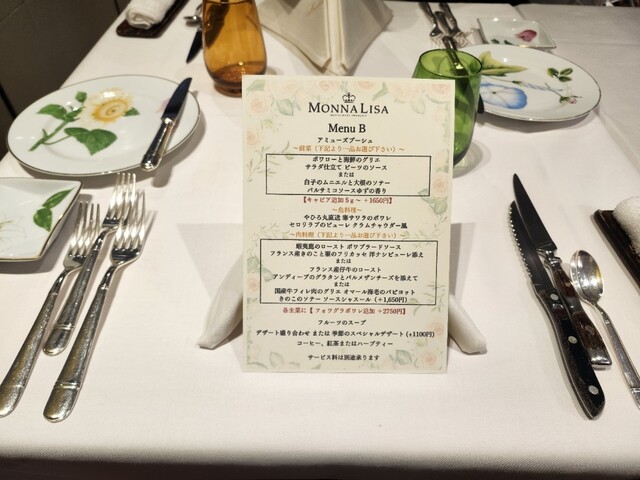 MONNALISA
Menu B
アミューズブーシュ
～前菜（下記より一品お選び下さい）～
ポワローと海鮮のグリエ
サラダ仕立て ビーツのソース
または
白子のムニエルと大根のソテー
バルサミコソースゆずの香り
【キャビア追加５g～ +1650円】
～魚料理～
やひろ丸直送 寒サワラのポワレ
セロリラブのピューレ クラムチャウダー風
～肉料理（下記より一品お選び下さい）～
蝦夷鹿のロースト ポワブラードソース
フランス産きのこと栗のフリカッセ 洋ナシピューレ添え
または
フランス産仔牛のロースト
アンディーブのグラタンとパルメザンチーズを添えて
または
国産牛フィレ肉のグリエ オマール海老のパピヨット
きのこのソテー ソースシャスール（+1,650円）
各主菜に【 フォワグラポワレ追加 +2750円】
フルーツのスープ
デザート盛り合わせ または 季節のスペシャルデザート (+1100円)
コーヒー、紅茶またはハーブティー
サービス料は別途承ります